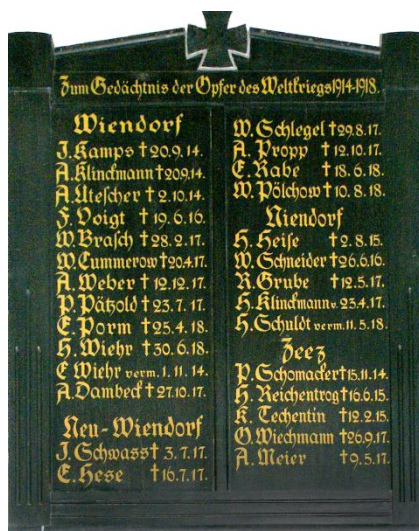 Zum Gedächtnis der Opfer des Weltkriegs 1914-1918.
Wiendorf
J. Kamps † 20.9.14.
A. Klinckmann † 20.9.14.
A. Utescher † 2.10.14.
F. Voigt † 19.6.16.
W. Brasch † 28.2.17.
W. Cummerow † 20.4.17.
A. Weber † 12.12.17.
P. Pätzold † 23.7.17.
E. Porm † 25.4.18.
H. Wiehr † 30.6.18.
E Wiehr verm. 1.11.14.
A. Dambeck † 27.10.17.
Neu-Wiendorf
J. Schwass † 3.7.17.
E. Hese † 16.7.17.
W. Schlegel † 29.8.17.
A. Propp † 12.10.17.
E. Rabe † 18.6.18.
W. Pölchow † 10.8.18.
Niendorf
H. Heise † 2.8.15.
W. Schneider † 26.6.16.
R. Grube † 12.5.17.
H. Klinckmann v. 23.4.17.
H. Schuldt verm. 11.5.18.
Zeez
P. Schomacker † 15.11.14.
H. Reichentrog † 16.6.15.
K. Techentin † 12.2.15.
O. Wiechmann † 26.9.17.
A. Meier † 9.5.17.